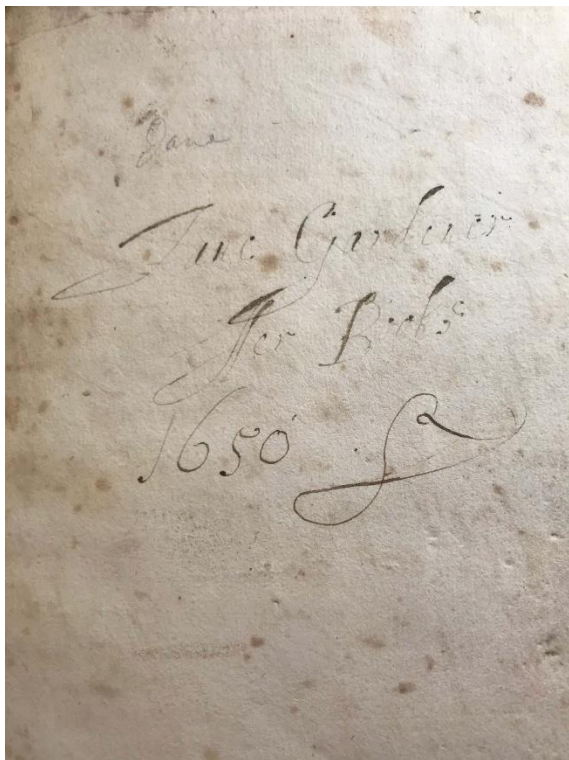 Jane
Jane Gardener
Her Booke
1650